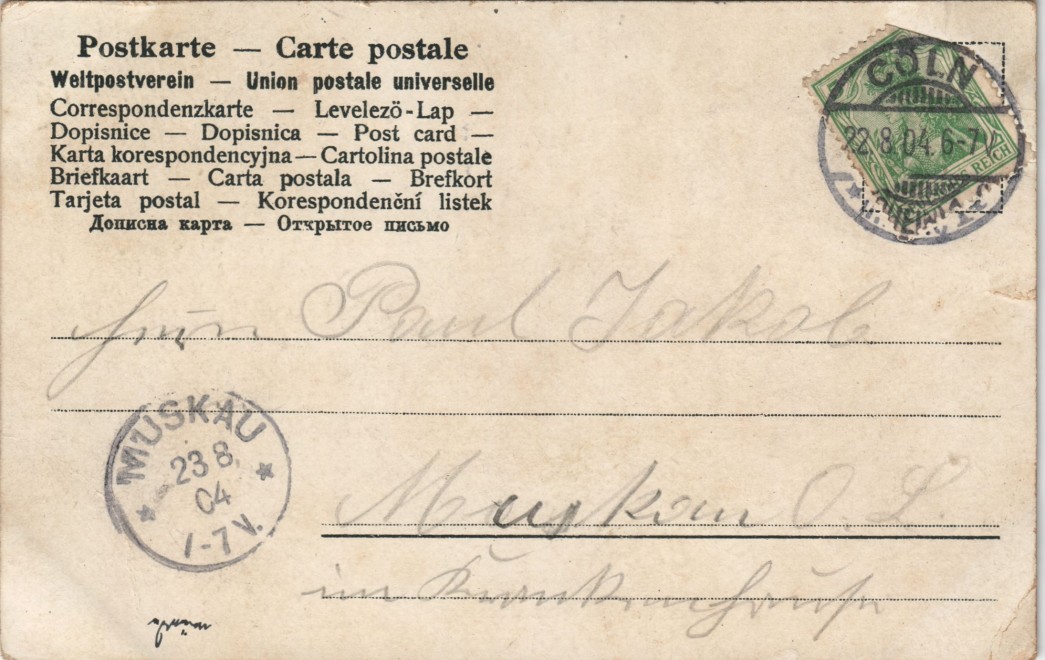 Postkarte — Carte postale
Weltpostverein — Union postale universelle
Correspondenzkarte — Levelező-Lap —
Dopisnice — Dopisnica — Post card —
Karta korespondencyjna — Cartolina postale
Briefkaart — Carta postala — Brefkort
Tarjeta postal — Korespondenční listek
Дописна карта — Открытое письмо
CÖLN
22.8.04.6-7V
REICH
Herrn Paul Jakob
MUSKAU
23 8.
04
1-7V.
Muskau O. L.
im Krankenhause